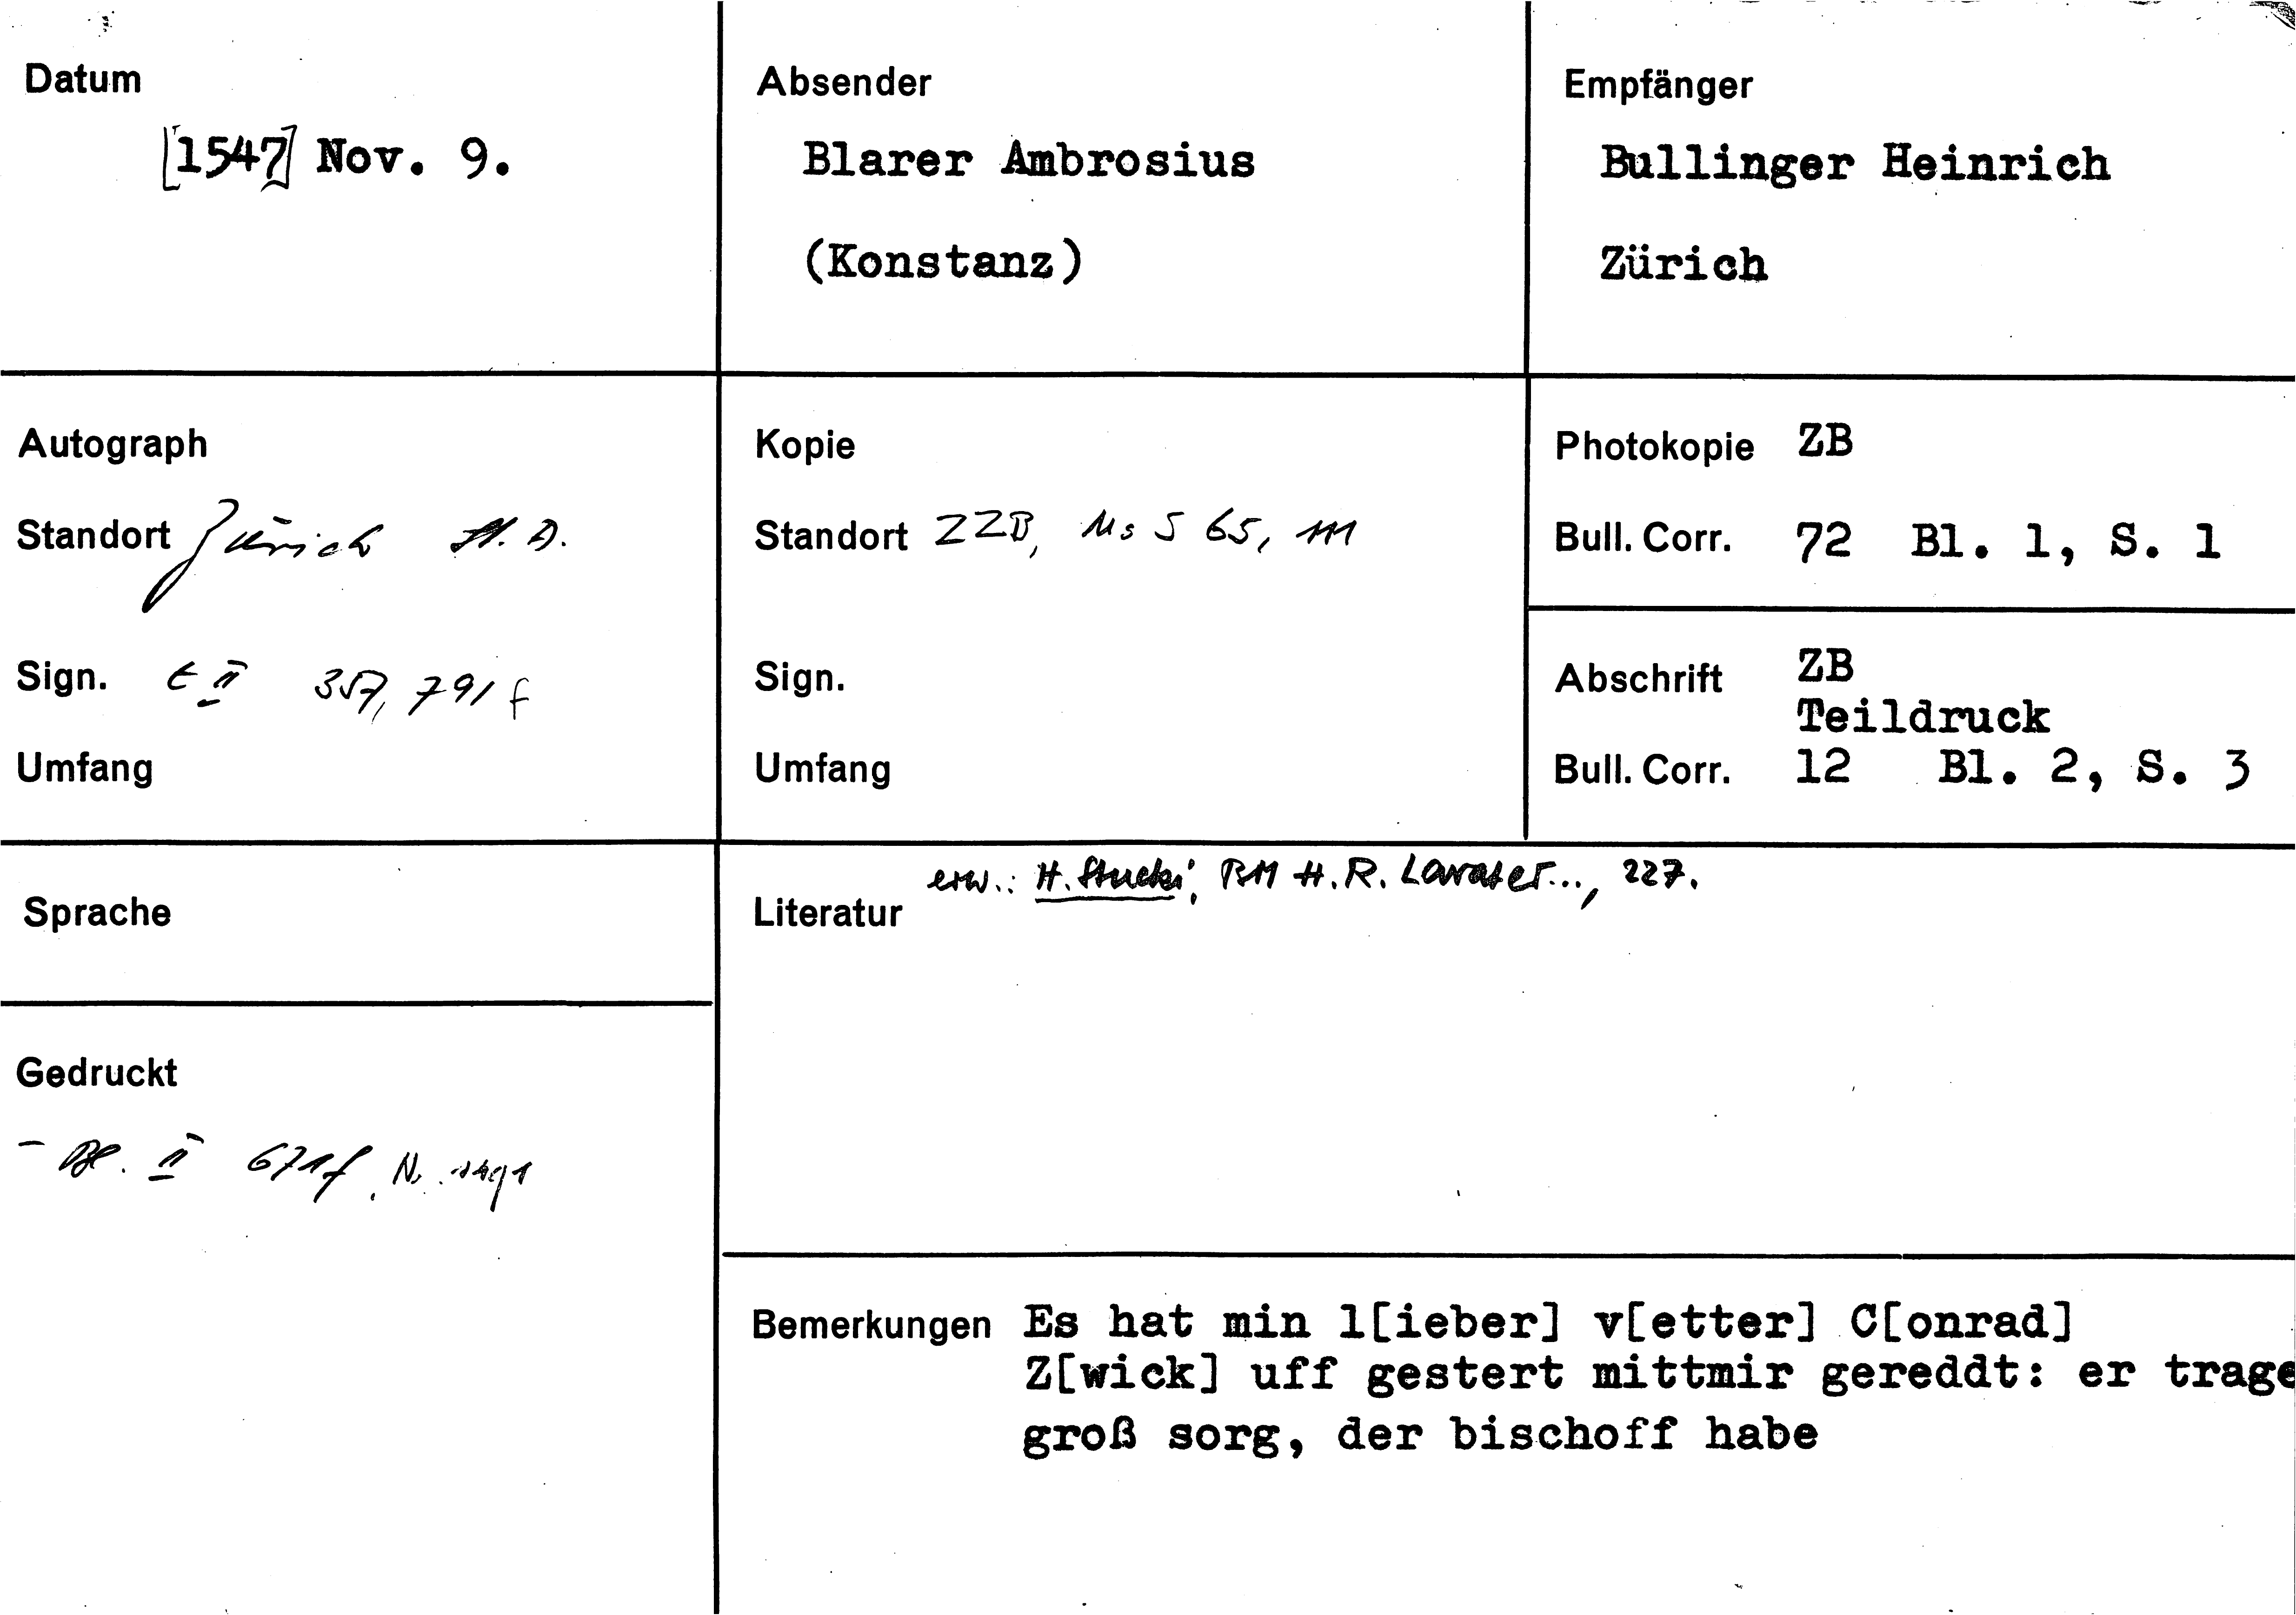 Datum
[1547] Nov. 9.
Absender
Blarer Ambrosius
(Konstanz)
Empfänger
Bullinger Heinrich
Zürich
Autograph
Standort Zürich St. A.
Sign. E II 357, 791 f
Umfang
Kopie
Standort ZZB, Ms S 65, 111
Sign.
Umfang
Photokopie ZB
Bull. Corr. 72 Bl. 1, S. 1
Abschrift ZB
Teildruck
Bull. Corr. 12 Bl. 2, S. 3
Sprache
Gedruckt
- Bl. II 671f, Nr. 1491
erw.: H. Stucki, BM H.R. Lavater..., 227.
Literatur
Bemerkungen Es hat min l[ieber] v[etter] C[onrad]
Z[wick] uff gestert mittmir gereddt: er trage
groß sorg, der bischoff habe